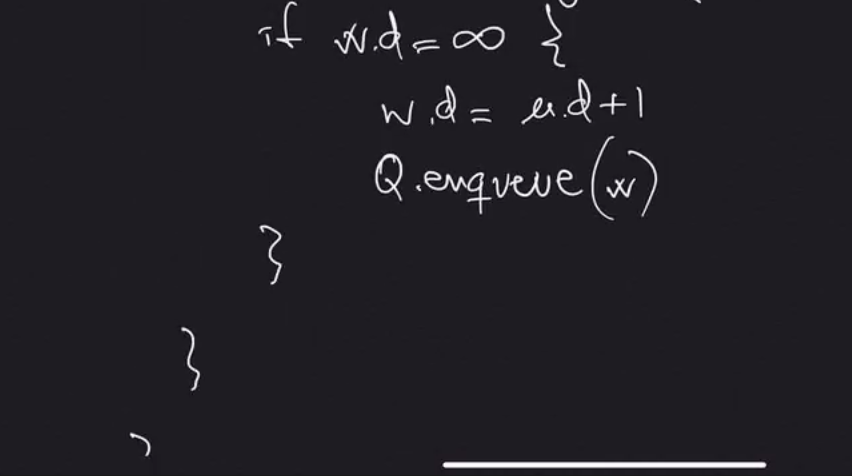 if w.d = ∞ {
w.d = u.d + 1
Q.enqueue(w)
}
}
}